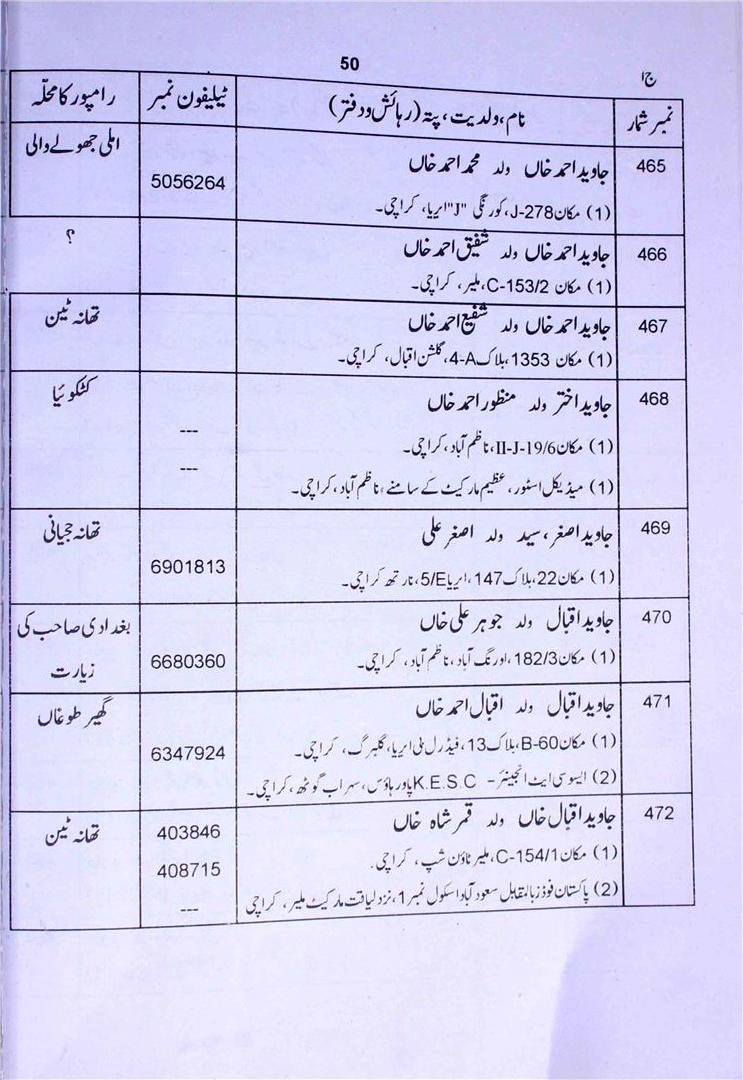 50
ج ا
نمبر شمار
نام، ولدیت، پتہ (رہائش و دفتر)
ٹیلیفون نمبر
رامپور کا محلّہ
465
جاوید احمد خاں ولد محمد احمد خاں
(1) مکان J-278، کورنگی "J" ایریا، کراچی۔
5056264
املی جھولے والی
466
جاوید احمد خاں ولد شفیق احمد خاں
(1) مکان C-153/2، ملیر، کراچی۔
؟
467
جاوید احمد خاں ولد شفیع احمد خاں
(1) مکان 1353، بلاک 4-A، گلشن اقبال، کراچی۔
تھانہ ٹین
468
جاوید اختر ولد منظور احمد خاں
(1) مکان II-J-19/6، ناظم آباد، کراچی۔
(1) میڈیکل اسٹور، عظیم مارکیٹ کے سامنے، ناظم آباد، کراچی۔
---
---
کٹکوئیا
469
جاوید اصغر، سید ولد اصغر علی
(1) مکان 22، بلاک 147، ایریا 5/E، نارتھ کراچی۔
6901813
تھانہ
470
جاوید اقبال ولد جوہر علی خاں
(1) مکان 182/3، اورنگ آباد، ناظم آباد، کراچی۔
6680360
بغدادی صاحب کی
زیارت
471
جاوید اقبال ولد اقبال احمد خاں
(1) مکان B-60، بلاک 13، فیڈرل بی ایریا، گلبرگ، کراچی۔
(2) ایسوسی ایٹ انجینئر - K.E.S.C پاور ہاؤس، سہراب گوٹھ، کراچی۔
6347924
گھیر طوغاں
472
جاوید اقبال خاں ولد قمر شاہ خاں
(1) مکان C-154/1، ملیر ٹاؤن شپ، کراچی۔
(2) پاکستان فوڈز بالمقابل سعود آباد اسکول نمبر 1، نزد لیاقت مارکیٹ ملیر، کراچی
403846
408715
---
تھانہ ٹین